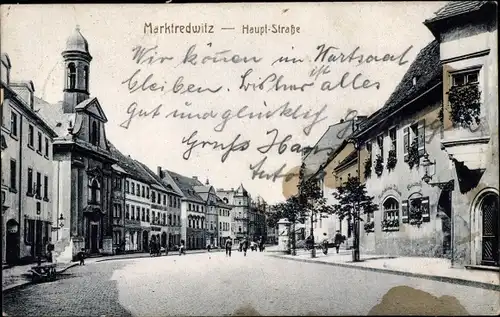 Marktredwitz — Haupt-Straße
Wir können im Wartsaal
bleiben. Bis hier ist alles
gut und glücklich
Gruß Hans